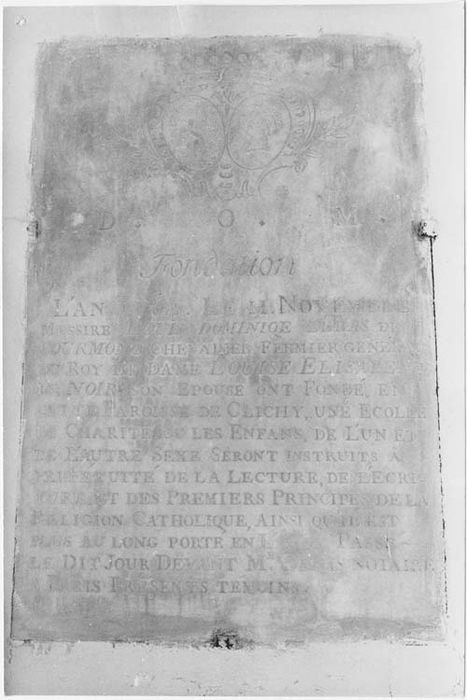 D. O. M.
Fondation
L'AN LE 11. NOVEMBRE
MESSIRE DOMINIQE DE
CHEVALIER FERMIER GENER
DU ROY ET DAME LOUISE ELISABET
NOIR SON EPOUSE ONT FONDÉ, EN
CETTE PAROISSE DE CLICHY, UNE ECOLLE
DE CHARITÉ OU LES ENFANS, DE L'UN ET
DE L'AUTRE SEXE SERONT INSTRUITS A
DE LA LECTURE, DE L'ECRI-
TURE ET DES PREMIERS PRINCIPES DE LA
RELIGION CATHOLIQUE, AINSI QU'IL EST
PLUS AU LONG PORTÉ EN PASSÉ
LE DIT JOUR DEVANT Me NOTAIRE
A PARIS PRESENTS TEMOINS.